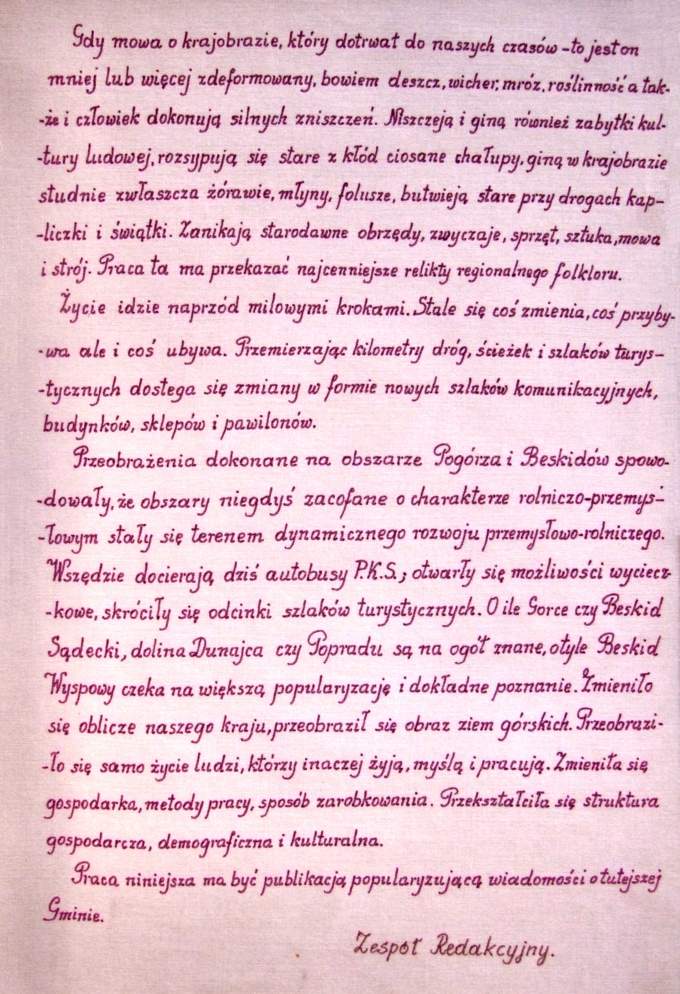 Gdy mowa o krajobrazie, który dotrwał do naszych czasów - to jest on
mniej lub więcej zdeformowany, bowiem deszcz, wicher, mróz, roślinność a tak-
-że i człowiek dokonują silnych zniszczeń. Niszczeją i giną również zabytki kul-
-tury ludowej, rozsypują się stare z kłód ciosane chałupy, giną w krajobrazie
studnie zwłaszcza żórawie, młyny, folusze, butwieją stare przy drogach kap-
-liczki i świątki. Zanikają starodawne obrzędy, zwyczaje, sprzęt, sztuka, mowa
i strój. Praca ta ma przekazać najcenniejsze relikty regionalnego folkloru.
Życie idzie naprzód milowymi krokami. Stale się coś zmienia, coś przyby-
-wa ale i coś ubywa. Przemierzając kilometry dróg, ścieżek i szlaków turys-
-tycznych dostega się zmiany w formie nowych szlaków komunikacyjnych,
budynków, sklepów i pawilonów.
Przeobrażenia dokonane na obszarze Pogórza i Beskidów spowo-
-dowały, że obszary niegdyś zacofane o charakterze rolniczo-przemys-
-łowym stały się terenem dynamicznego rozwoju przemysłowo-rolniczego.
Wszędzie docierają dziś autobusy P.K.S.; otwarły się możliwości wyciecz-
-kowe, skróciły się odcinki szlaków turystycznych. O ile Gorce czy Beskid
Sądecki, dolina Dunajca czy Popradu są na ogół znane, o tyle Beskid
Wyspowy czeka na większą popularyzację i dokładne poznanie. Zmieniło
się oblicze naszego kraju, przeobraził się obraz ziem górskich. Przeobrazi-
-ło się samo życie ludzi, którzy inaczej żyją, myślą i pracują. Zmieniła się
gospodarka, metody pracy, sposób zarobkowania. Przekształciła się struktura
gospodarcza, demograficzna i kulturalna.
Praca niniejsza ma być publikacją popularyzującą wiadomości o tutejszej
Gminie.
Zespół Redakcyjny.